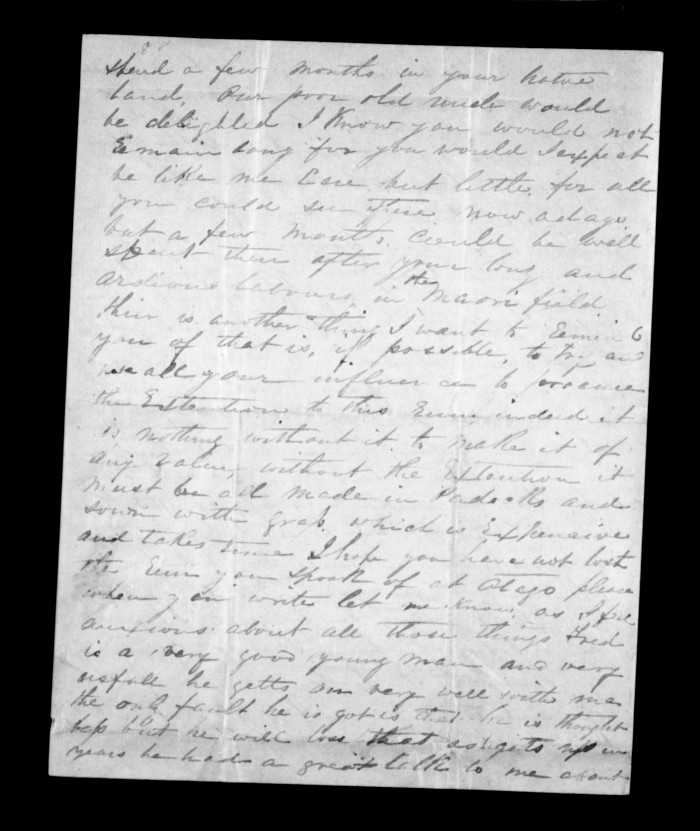 spend a few months in your native
Land, Our poor old uncle would
be delighted I know you would not
Remain long for you would I expect
be like me Care but little for all
you could see there now adays
but a few months could be well
spent there after your long and
ardious Labours, in the Maori field
their is another thing I want to Remind
you of that is, if possible, to try and
use all your influence to procure
the Extention to this Run, indeed it
is nothing without it to make it of
any value, without the Extention it
must be all made in Padocks and
sown with grass which is Expensive
and takes time I hope you have not lost
the Run you spook of at Otago please
when you write let me know as I feel
anxious about all those things Fred
is a very good young man and very
usfull he getts on very well with me
the only fault he is got is that he is thought
less but he will loos that as he gets up in
years he had a great talk to me about